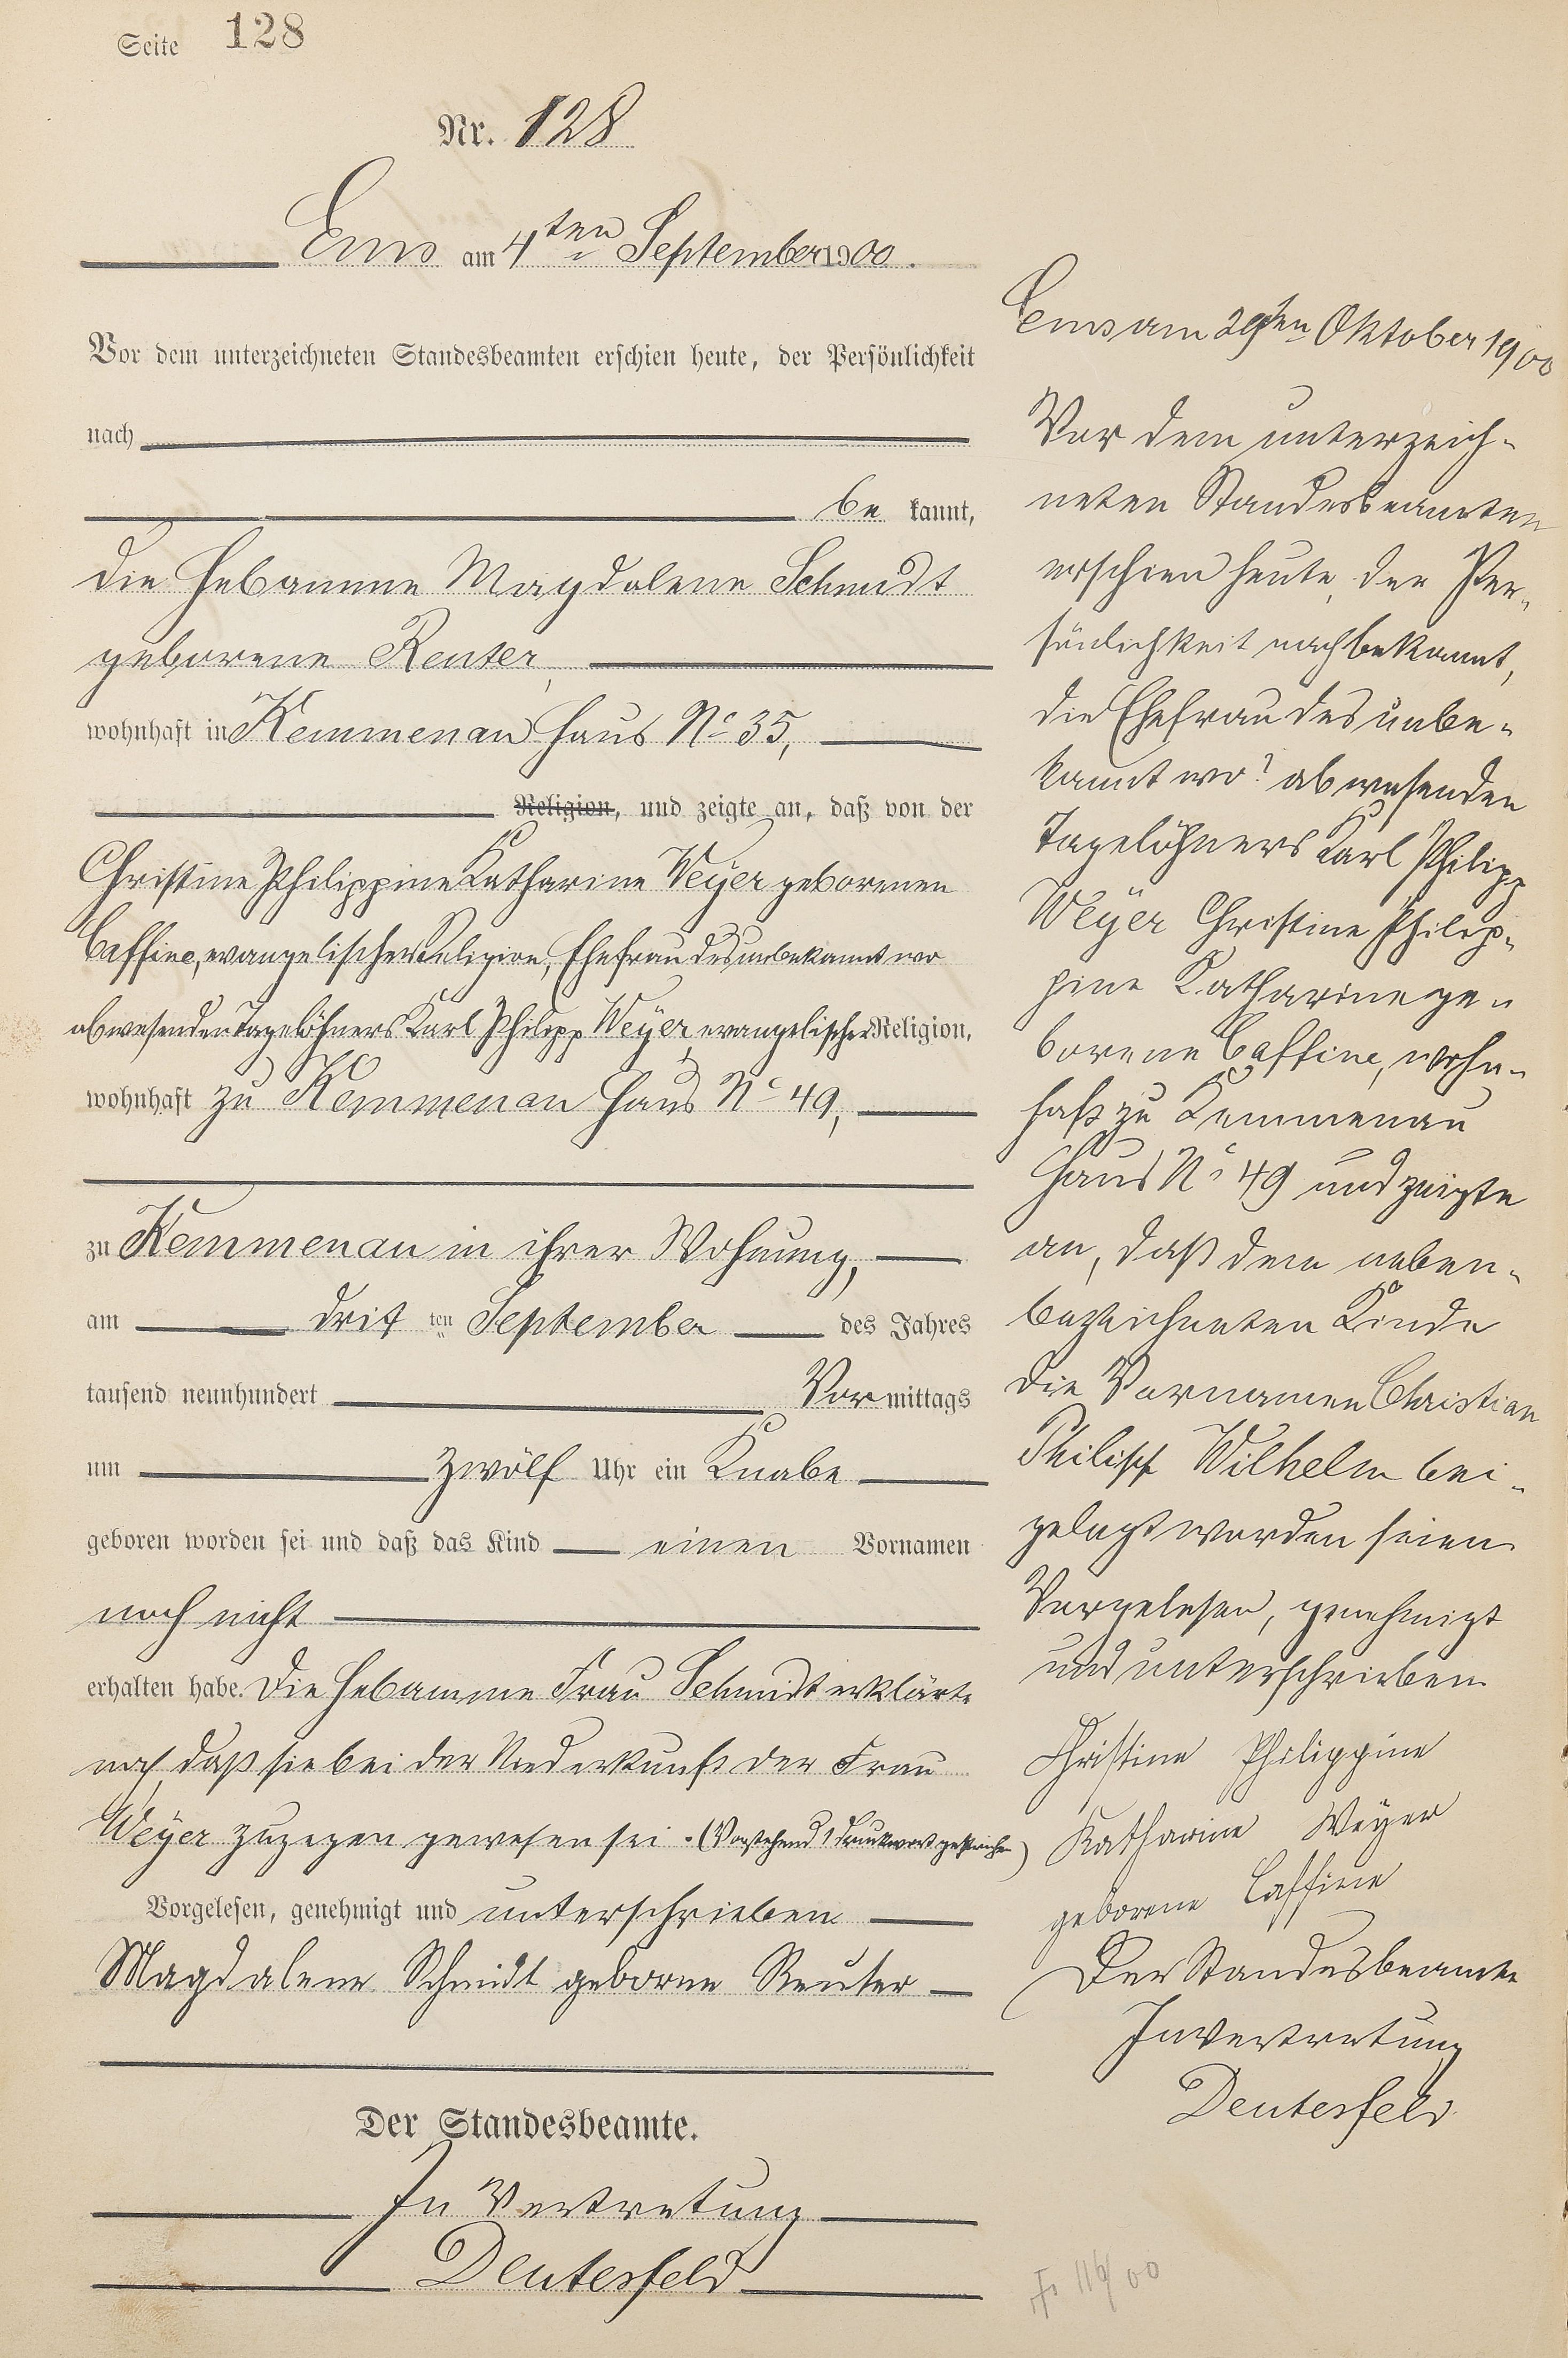 Seite 128
Nr. 128
Ems am 4ten September 1900.
Vor dem unterzeichneten Standesbeamten erschien heute, der Persönlichkeit
nach
be kannt,
die Hebamme Magdalene Schmidt
geborene Reuter,
wohnhaft in Kemmenau Haus No 35,
Religion, und zeigte an, daß von der
Christine Philippine Katharine Weyer geborenen
Caffine, evangelischer Religion, Ehefrau des unbekannt wo
abwesenden Tagelöhners Karl Philipp Weyer, evangelischer Religion,
wohnhaft zu Kemmenau Haus No 49,
zu Kemmenau in ihrer Wohnung,
am drit ten September des Jahres
tausend neunhundert Vor mittags
um zwölf Uhr ein Knabe
geboren worden sei und daß das Kind einen Vornamen
noch nicht
erhalten habe. Die Hebamme Frau Schmidt erklärte
noch, daß sie bei der Niederkunft der Frau
Weyer zugegen gewesen sei. (Vorstehend 1 Druckwort gestrichen)
Vorgelesen, genehmigt und unterschrieben
Magdalene Schmidt geborne Reuter
Der Standesbeamte.
In Vertretung
Deutesfeld
Ems am 29ten Oktober 1900
Vor dem unterzeich-
neten Standesbeamten
erschien heute, der Per-
sönlichkeit nach bekannt,
die Ehefrau des unbe-
kannt wo? abwesenden
Tagelöhners Karl Philipp
Weyer Christine Philip-
pine Katharine ge-
borene Caffine, wohn-
haft zu Kemmenau
Haus No 49 und zeigte
an, daß dem neben-
bezeichneten Kinde
die Vornamen Christian
Philipp Wilhelm bei-
gelegt worden seien
Vorgelesen, genehmigt
und unterschrieben
Christine Philippine
Katharine Weyer
geborene Caffine
Der Standesbeamte
In Vertretung
Deutesfeld